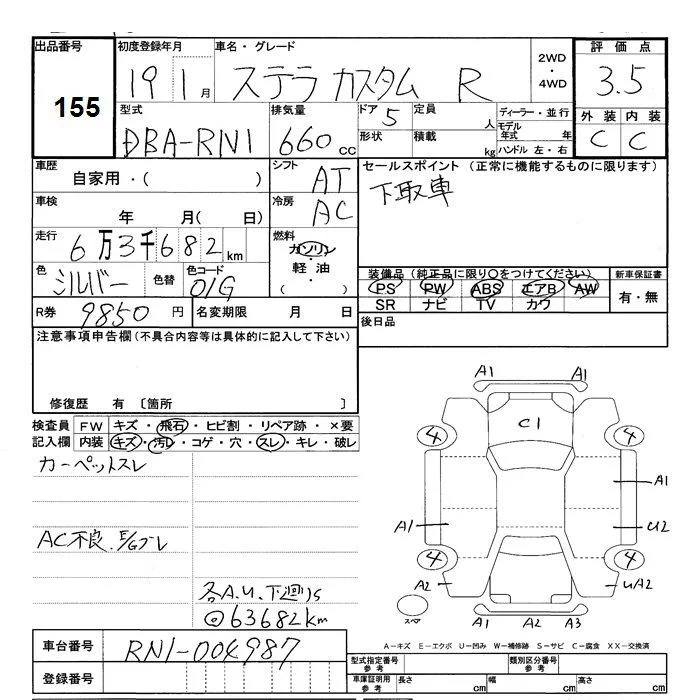 出品番号 初度登録年月 車名・グレード 2WD・4WD 評価点
155 19 1月 ステラ カスタム R 3.5
型式 排気量 ドア 5 定員 人 ディーラー・並行 外装 内装
DBA-RN1 660cc 形状 積載 kg モデル年式 年 ハンドル 左・右 C C
車歴 シフト セールスポイント (正常に機能するものに限ります)
自家用・( ) AT 下取車
車検 冷房
年 月( 日) AC
走行 6万3千682km 燃料 ガソリン・軽油・( )
色 シルバー 色替 色コード 01G
装備品(純正品に限り○をつけてください) 新車保証書
PS PW ABS エアB AW 有・無
SR ナビ TV カワ
R券 9850円 名変期限 月 日 後日品
注意事項申告欄(不具合内容等は具体的に記入して下さい)
修復歴 有 〔箇所 〕
検査員記入欄 FW キズ・飛石・ヒビ割・リペア跡・×要
内装 キズ・汚レ・コゲ・穴・スレ・キレ・破レ
カーペットスレ
AC不良.E/Gブレ
各A.U.下廻りS
@63682km
A1 A1
C1
4 4
A1
A1 U2
4 4
A2 UA2
スペア A1 A2 A3
A-キズ E-エクボ U-凹み W-補修跡 S-サビ C-腐食 XX-交換済
車台番号 RN1-004987
登録番号
型式指定番号 参考 類別区分番号 参考
車庫証明用 参考 長さ cm 幅 cm 高さ cm